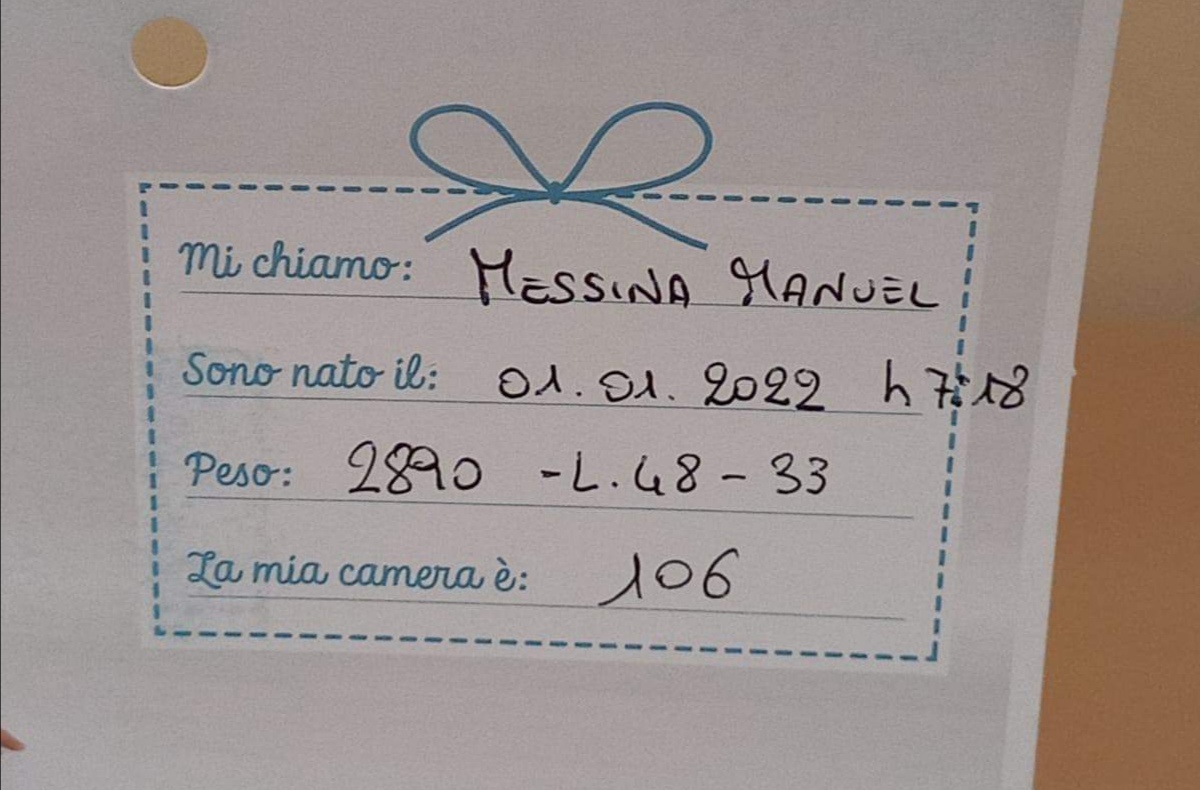 Mi chiamo: MESSINA MANUEL
Sono nato il: 01.01.2022 h 7:18
Peso: 2890 -L.48-33
La mia camera è: 106